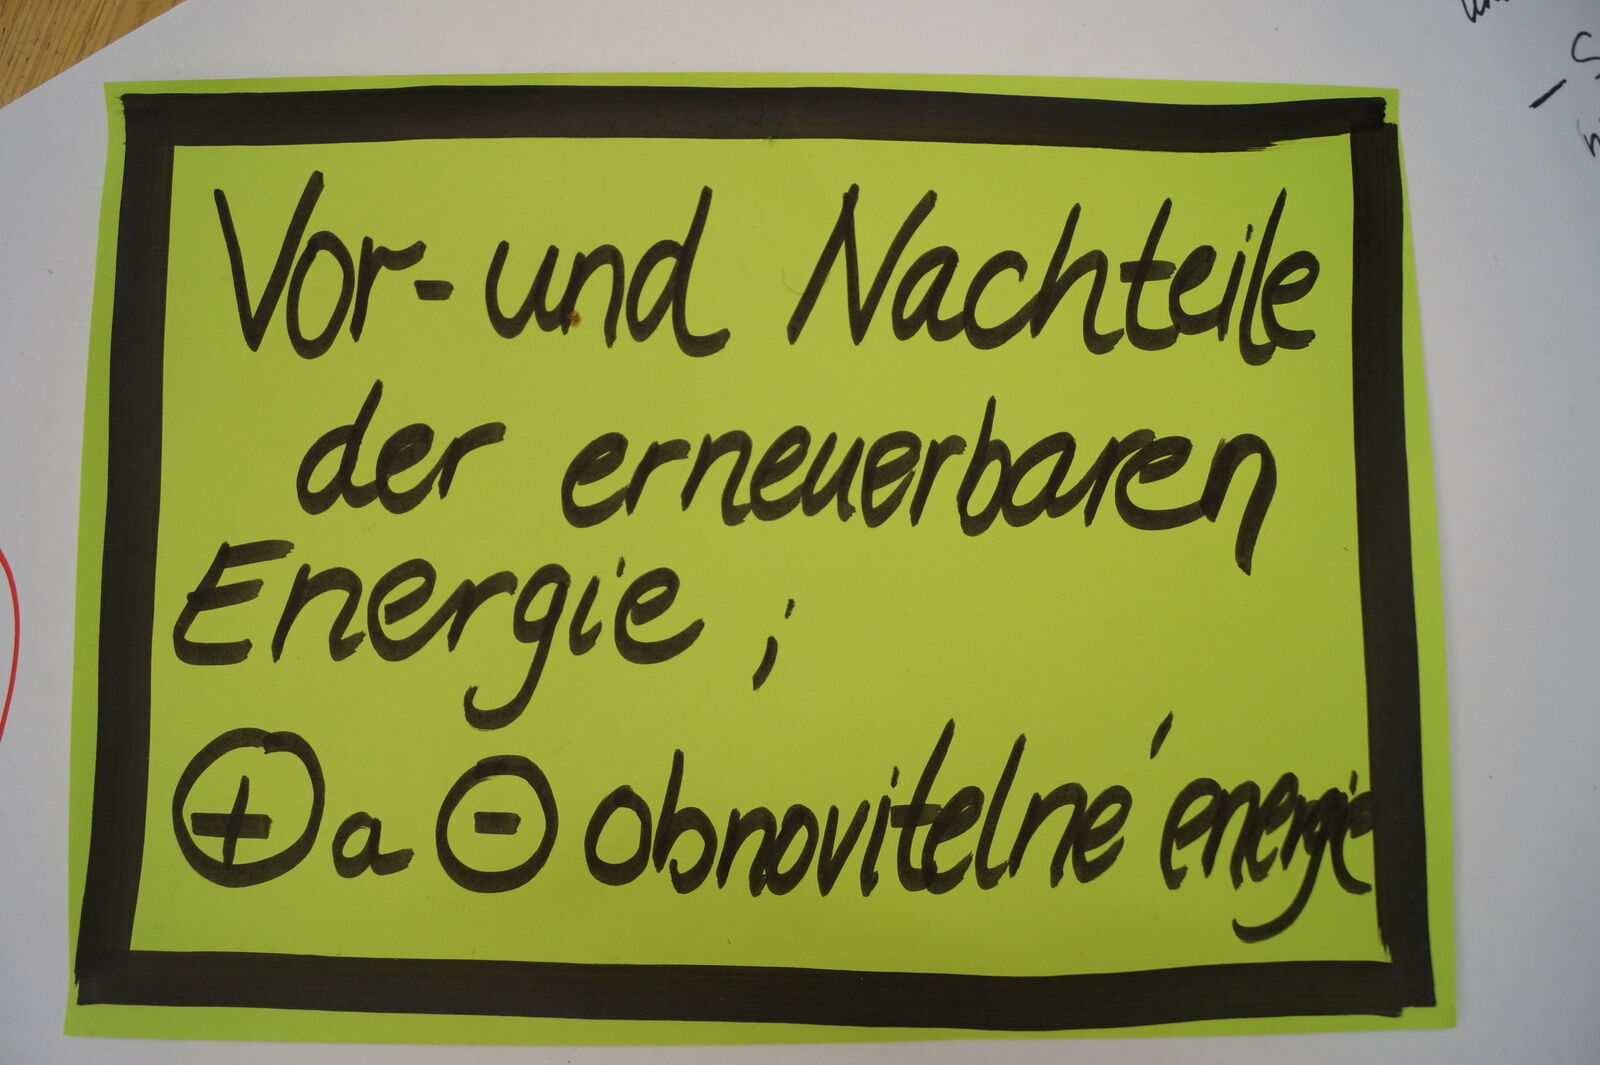 Vor- und Nachteile
der erneuerbaren
Energie ;
⊕ a ⊖ obnovitelné energie